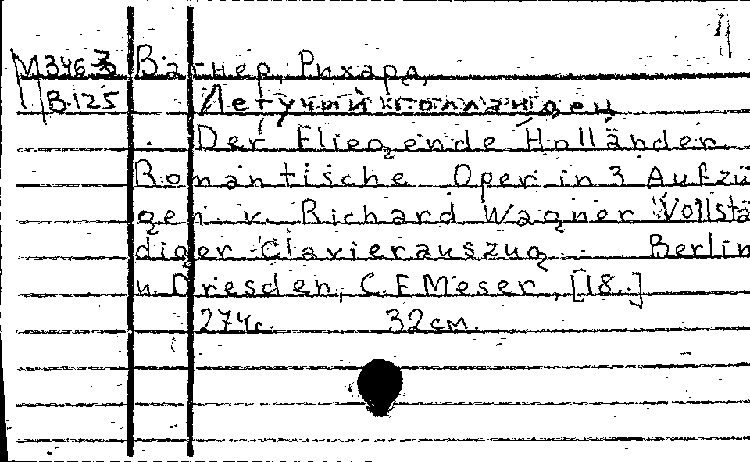 М346.3 Вагнер, Рихард,
В-125 Летучий голландец
Der Fliegende Holländer.
Romantische Oper in 3 Aufzü
gen. v. Richard Wagner Vollstä
diger Clavierauszug. - Berlin
u. Dresden, C.F. Meser, [18..]
274с. 32см.